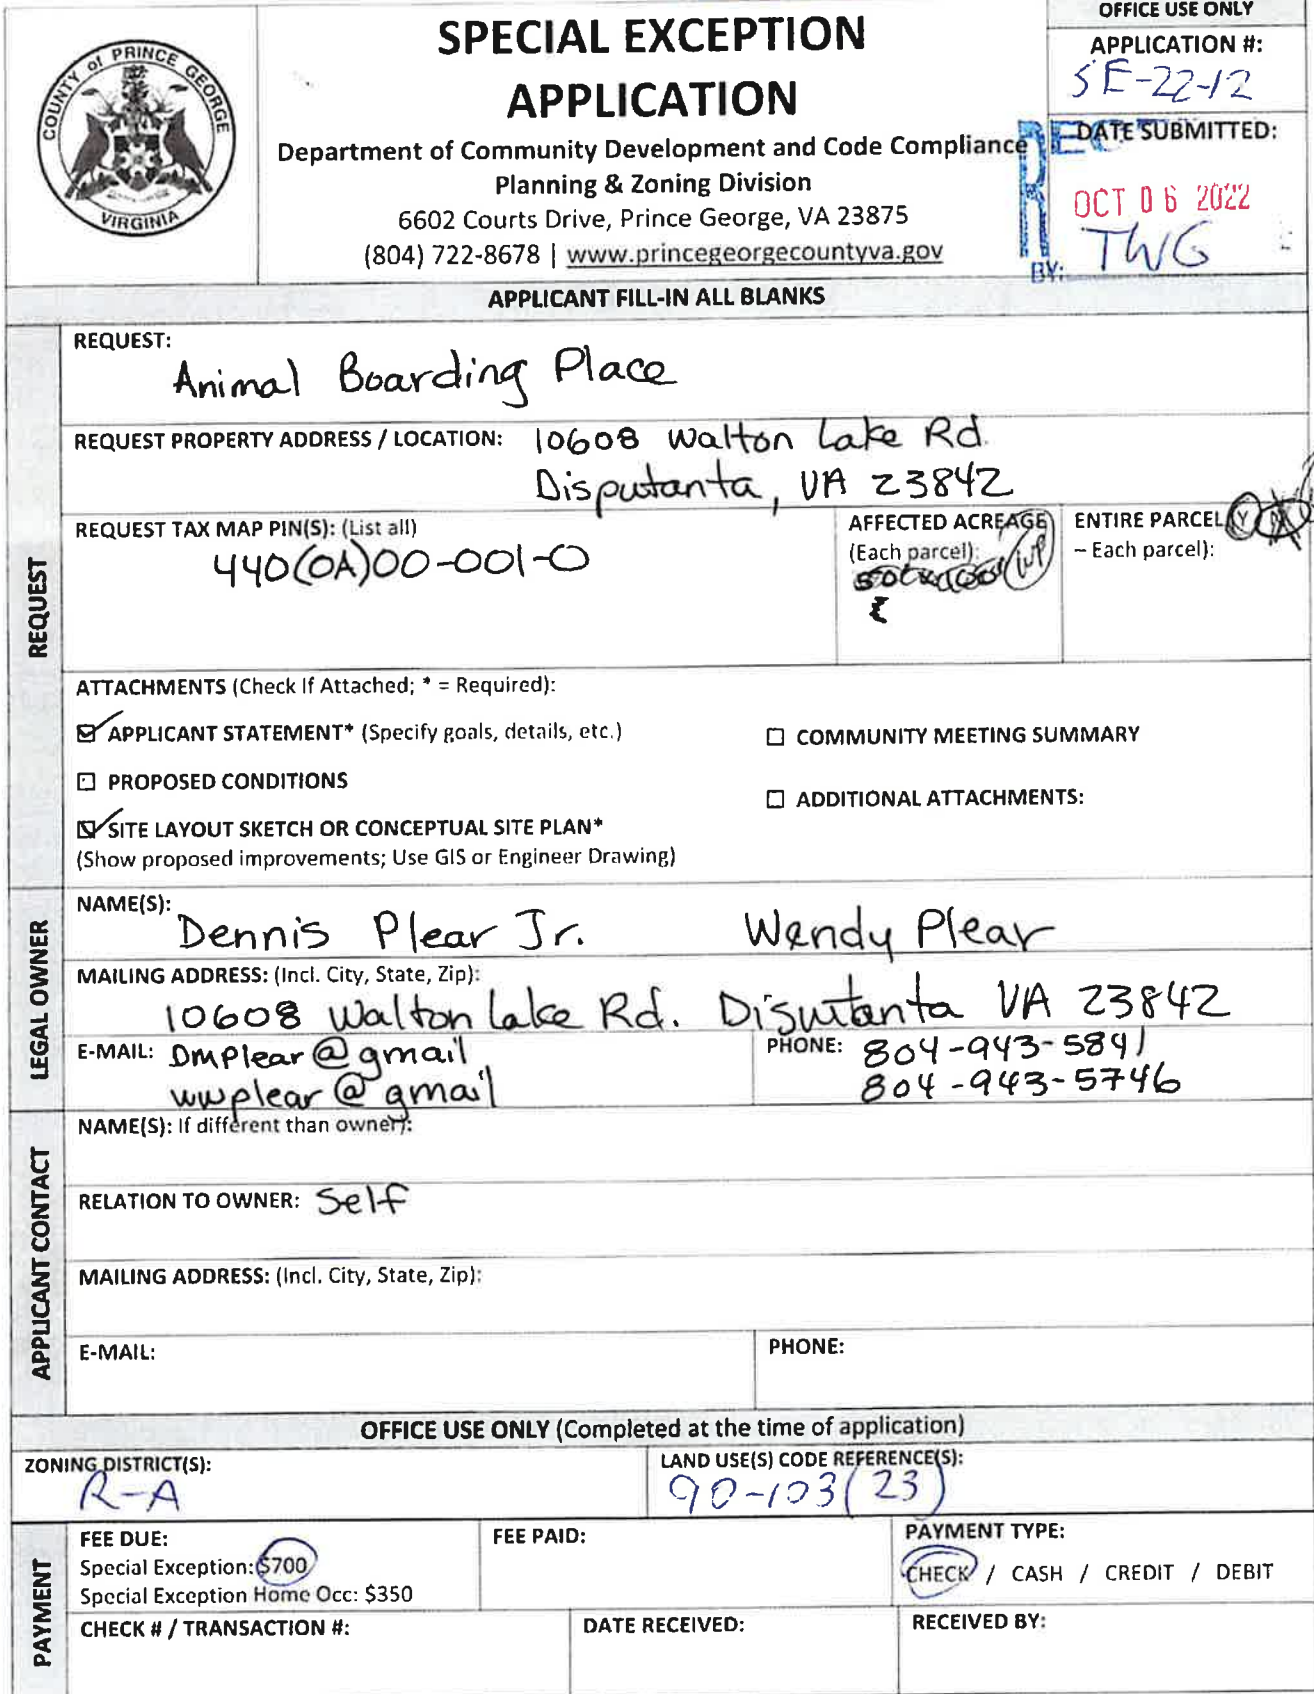 COUNTY of PRINCE GEORGE
VIRGINIA
SPECIAL EXCEPTION
APPLICATION
Department of Community Development and Code Compliance
Planning & Zoning Division
6602 Courts Drive, Prince George, VA 23875
(804) 722-8678 | www.princegeorgecountyva.gov
OFFICE USE ONLY
APPLICATION #:
SE-22-12
DATE SUBMITTED:
OCT 06 2022
BY: TWG
APPLICANT FILL-IN ALL BLANKS
REQUEST
REQUEST:
Animal Boarding Place
REQUEST PROPERTY ADDRESS / LOCATION: 10608 Walton Lake Rd.
Disputanta, VA 23842
REQUEST TAX MAP PIN(S): (List all)
440(0A)00-001-0
AFFECTED ACREAGE
(Each parcel):
WP
ENTIRE PARCEL (Y
– Each parcel):
ATTACHMENTS (Check If Attached; * = Required):
APPLICANT STATEMENT* (Specify goals, details, etc.)
COMMUNITY MEETING SUMMARY
PROPOSED CONDITIONS
ADDITIONAL ATTACHMENTS:
SITE LAYOUT SKETCH OR CONCEPTUAL SITE PLAN*
(Show proposed improvements; Use GIS or Engineer Drawing)
LEGAL OWNER
NAME(S):
Dennis Plear Jr. Wendy Plear
MAILING ADDRESS: (Incl. City, State, Zip):
10608 Walton Lake Rd. Disuitanta VA 23842
E-MAIL: Dmplear@gmail
wwplear@gmail
PHONE: 804-943-5841
804-943-5746
APPLICANT CONTACT
NAME(S): If different than owner):
RELATION TO OWNER: Self
MAILING ADDRESS: (Incl. City, State, Zip):
E-MAIL:
PHONE:
OFFICE USE ONLY (Completed at the time of application)
ZONING DISTRICT(S):
R-A
LAND USE(S) CODE REFERENCE(S):
90-103(23)
PAYMENT
FEE DUE:
Special Exception: $700
Special Exception Home Occ: $350
FEE PAID:
PAYMENT TYPE:
CHECK / CASH / CREDIT / DEBIT
CHECK # / TRANSACTION #:
DATE RECEIVED:
RECEIVED BY: